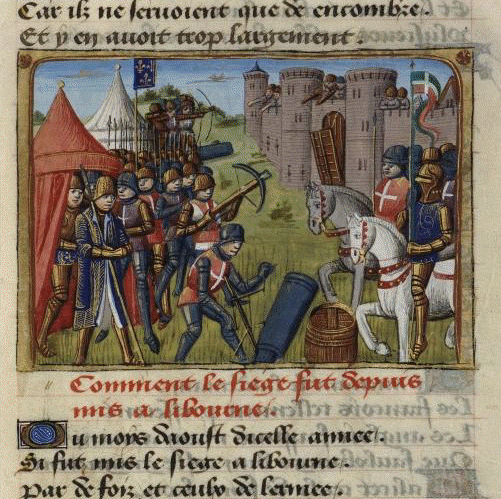 Car ilz ne seruoient que de encombre.
Et y en auoit trop largement.
Comment le siege fut depuis
mis a libourne.
Du moys daoust dicelle annee.
Si fut mis le siege a libourne.
Par de foix et ceulx de larmee